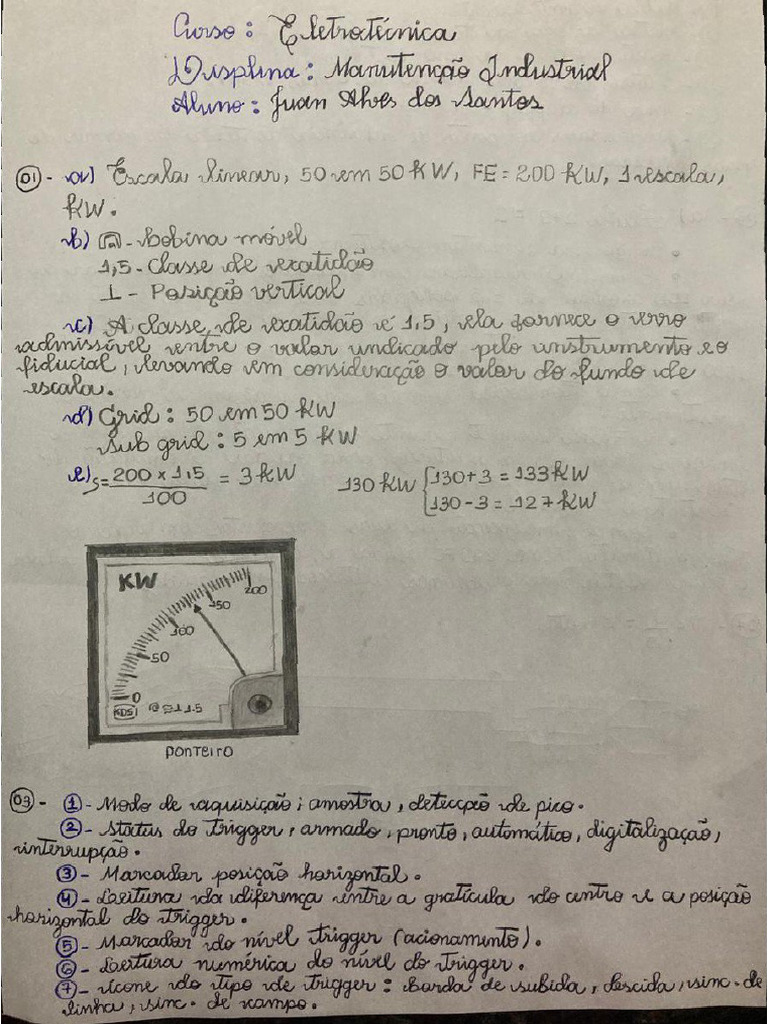 Curso: Eletrotécnica
Disiplina: Manutenção Industrial
Aluno: Juan Alves dos Santos
01 - a) Escala linear, 50 em 50 KW, FE = 200 KW, 1 escala,
KW.
b) - bobina móvel
1,5 - Classe de exatidão
⊥ - Posição vertical
c) A classe de exatidão é 1,5, ela fornece o erro
admissível entre o valor indicado pelo instrumento e o
fiducial, levando em consideração o valor do fundo de
escala.
d) Grid: 50 em 50 KW
Sub grid: 5 em 5 KW
e) S = 200 x 1,5 / 100 = 3 KW 130 KW { 130 + 3 = 133 KW
130 - 3 = 127 KW
KW
200
150
100
50
0
KDSI 1.5
PONTEIRO
03 - 1 - Modo de aquisição; amostra, detecção de pico.
2 - Status do Trigger, armado, pronto, automático, digitalização,
interrupção.
3 - Marcador posição horizontal.
4 - Leitura da diferença entre a gratícula do centro e a posição
horizontal do trigger.
5 - Marcador do nível trigger (acionamento).
6 - Leitura numérica do nível do Trigger.
7 - Ícone do tipo de trigger: borda de subida, descida, sinc. de
linha, sinc. de campo.